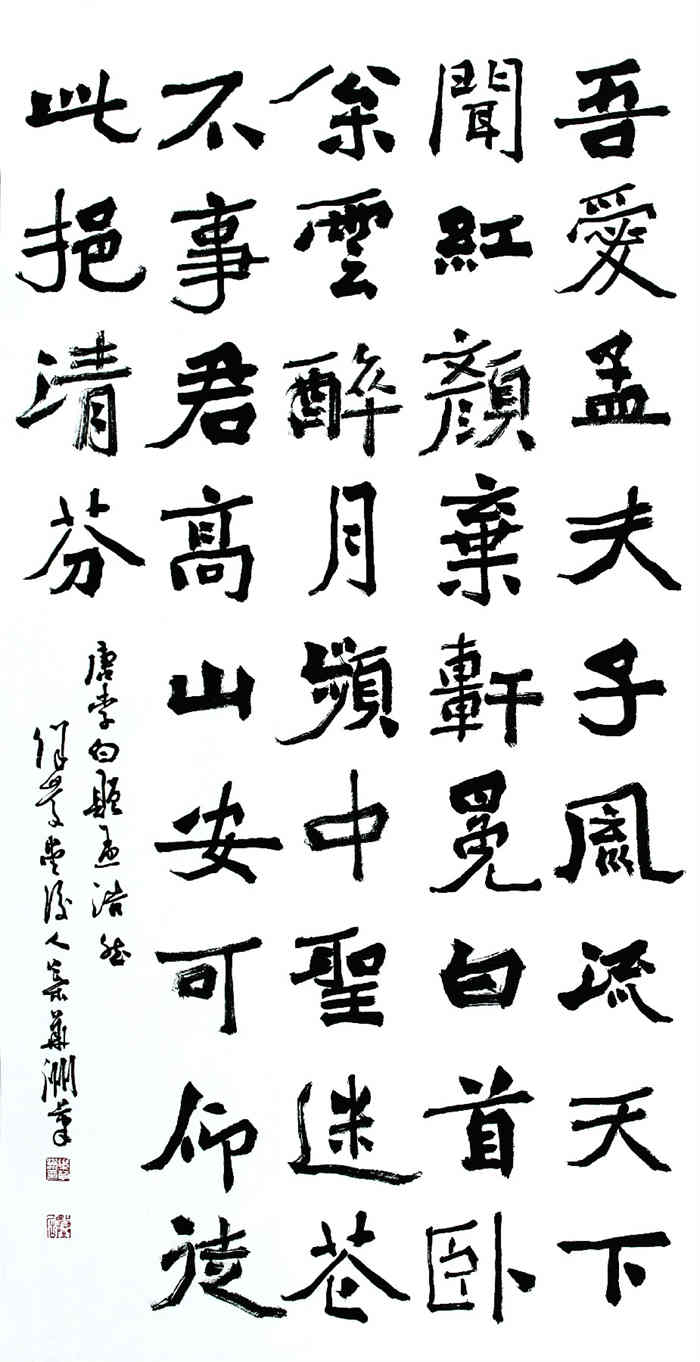 吾愛孟夫子風流天下
聞紅顏棄軒冕白首卧
枀雲醉月頻中聖迷花
不事君高山安可仰徒
此挹清芬
唐李白題孟浩然
堂後人